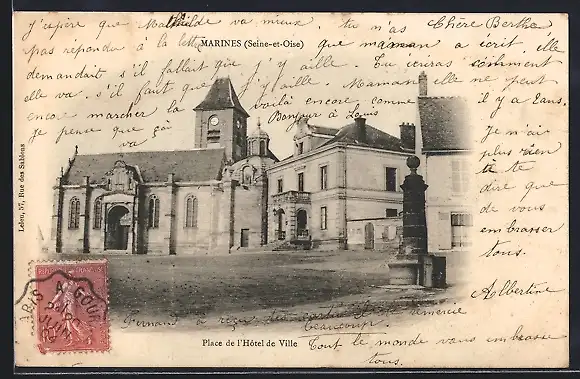 Chère Berthe
j'espère que Mathilde va mieux. tu n'as
pas répondu à la lettre que maman a écrit, elle
demandait s'il fallait que j'y aille. Tu écriras comment
elle va, s'il faut que j'y aille. Maman elle ne peut
encore marcher la voilà encore comme il y a 2 ans.
je pense que ça Bonjour à Louis
MARINES (Seine-et-Oise)
Je n'ai
plus rien
à te
dire que
de vous
embrasser
tous.
Albertine
Lelen, 57, Rue des Sablons
PARIS A GOURNAY
Fernand a reçu
beaucoup
Place de l'Hôtel de Ville
Tout le monde vous embrasse
tous.